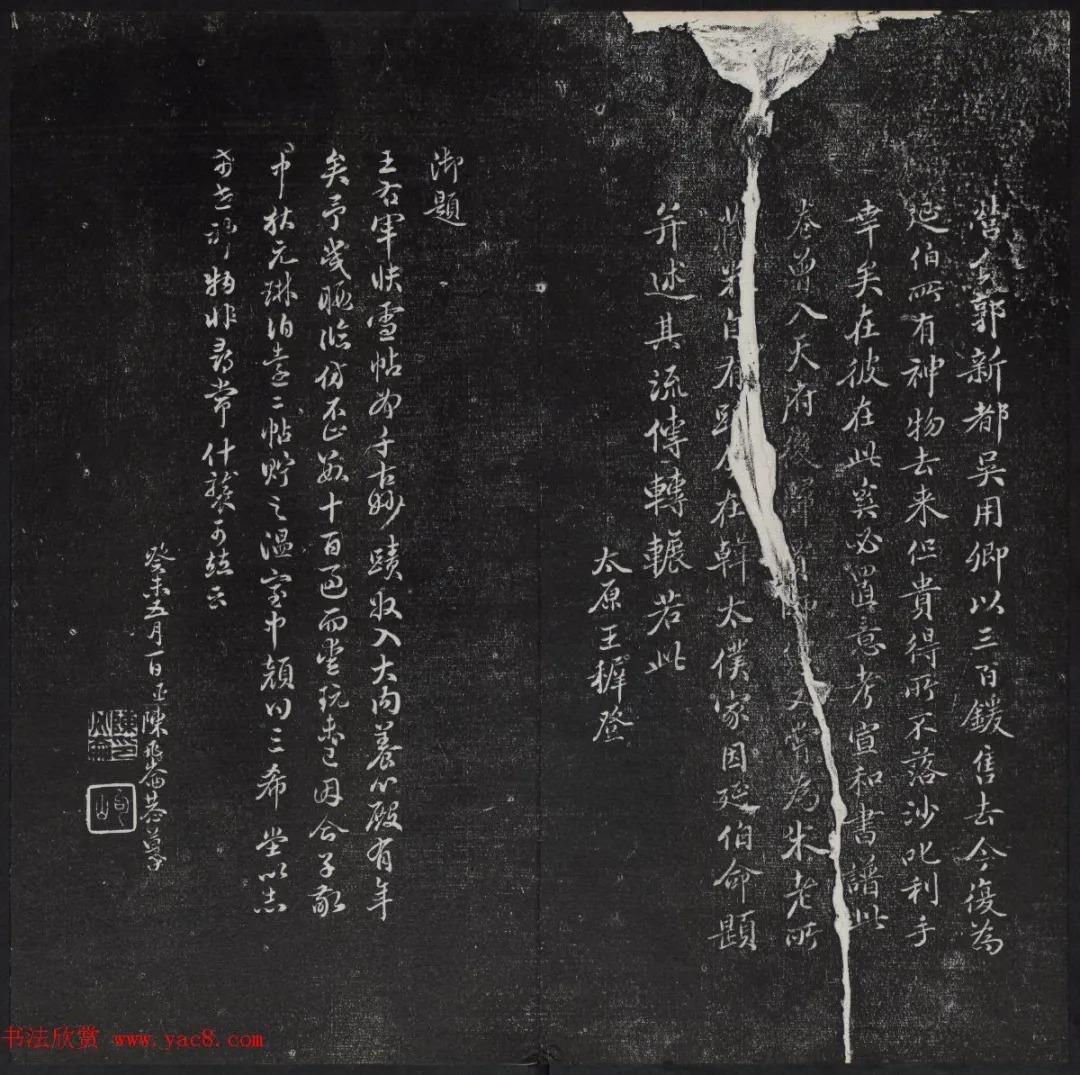 營郭新都吳用卿以三百鍰售去今復為
延伯所有神物去来但貴得所不落沙吒利手
幸矣在彼在此奚必置意考宣和書譜此
卷曾入天府後歸賈師又嘗為朱老所
藏米自有跋今在韓太僕家因延伯命題
并述其流傳轉輾若此
太原王穉登
御題
王右軍快雪帖為千古妙蹟收入大内養心殿有年
矣予幾暇臨仿不止數十百過而愛玩未已因合子敬
中秋元琳伯遠二帖貯之溫室中顏曰三希堂以志
希世神物非尋常什襲可並云
癸未五月一日陳兆崙恭摹
書法欣赏 www.yac8.com